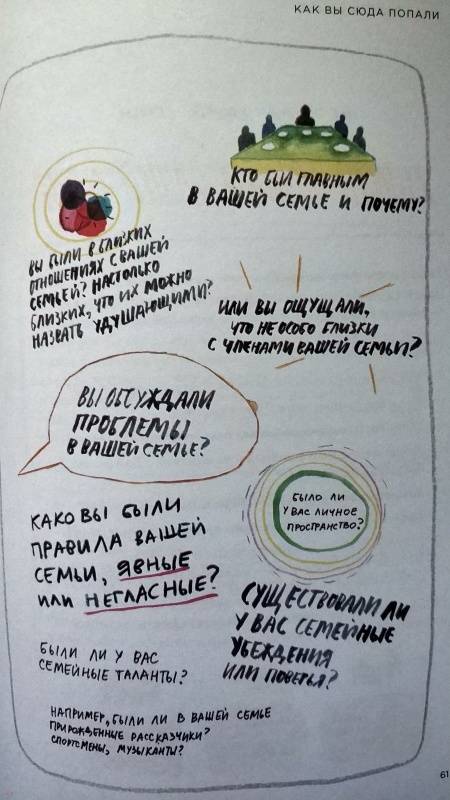 КАК ВЫ СЮДА ПОПАЛИ
КТО БЫЛ ГЛАВНЫМ
В ВАШЕЙ СЕМЬЕ И ПОЧЕМУ?
ВЫ БЫЛИ В БЛИЗКИХ
ОТНОШЕНИЯХ С ВАШЕЙ
СЕМЬЕЙ? НАСТОЛЬКО
БЛИЗКИХ, ЧТО ИХ МОЖНО
НАЗВАТЬ УДУШАЮЩИМИ?
ИЛИ ВЫ ОЩУЩАЛИ,
ЧТО НЕ ОСОБО БЛИЗКИ
С ЧЛЕНАМИ ВАШЕЙ СЕМЬИ?
ВЫ ОБСУЖДАЛИ
ПРОБЛЕМЫ
В ВАШЕЙ СЕМЬЕ?
БЫЛО ЛИ
У ВАС ЛИЧНОЕ
ПРОСТРАНСТВО?
КАКОВЫ БЫЛИ
ПРАВИЛА ВАШЕЙ
СЕМЬИ, ЯВНЫЕ
ИЛИ НЕГЛАСНЫЕ?
СУЩЕСТВОВАЛИ ЛИ
У ВАС СЕМЕЙНЫЕ
УБЕЖДЕНИЯ
ИЛИ ПОВЕРЬЯ?
БЫЛИ ЛИ У ВАС
СЕМЕЙНЫЕ ТАЛАНТЫ?
НАПРИМЕР, БЫЛИ ЛИ В ВАШЕЙ СЕМЬЕ
ПРИРОЖДЕННЫЕ РАССКАЗЧИКИ?
СПОРТСМЕНЫ, МУЗЫКАНТЫ?
61